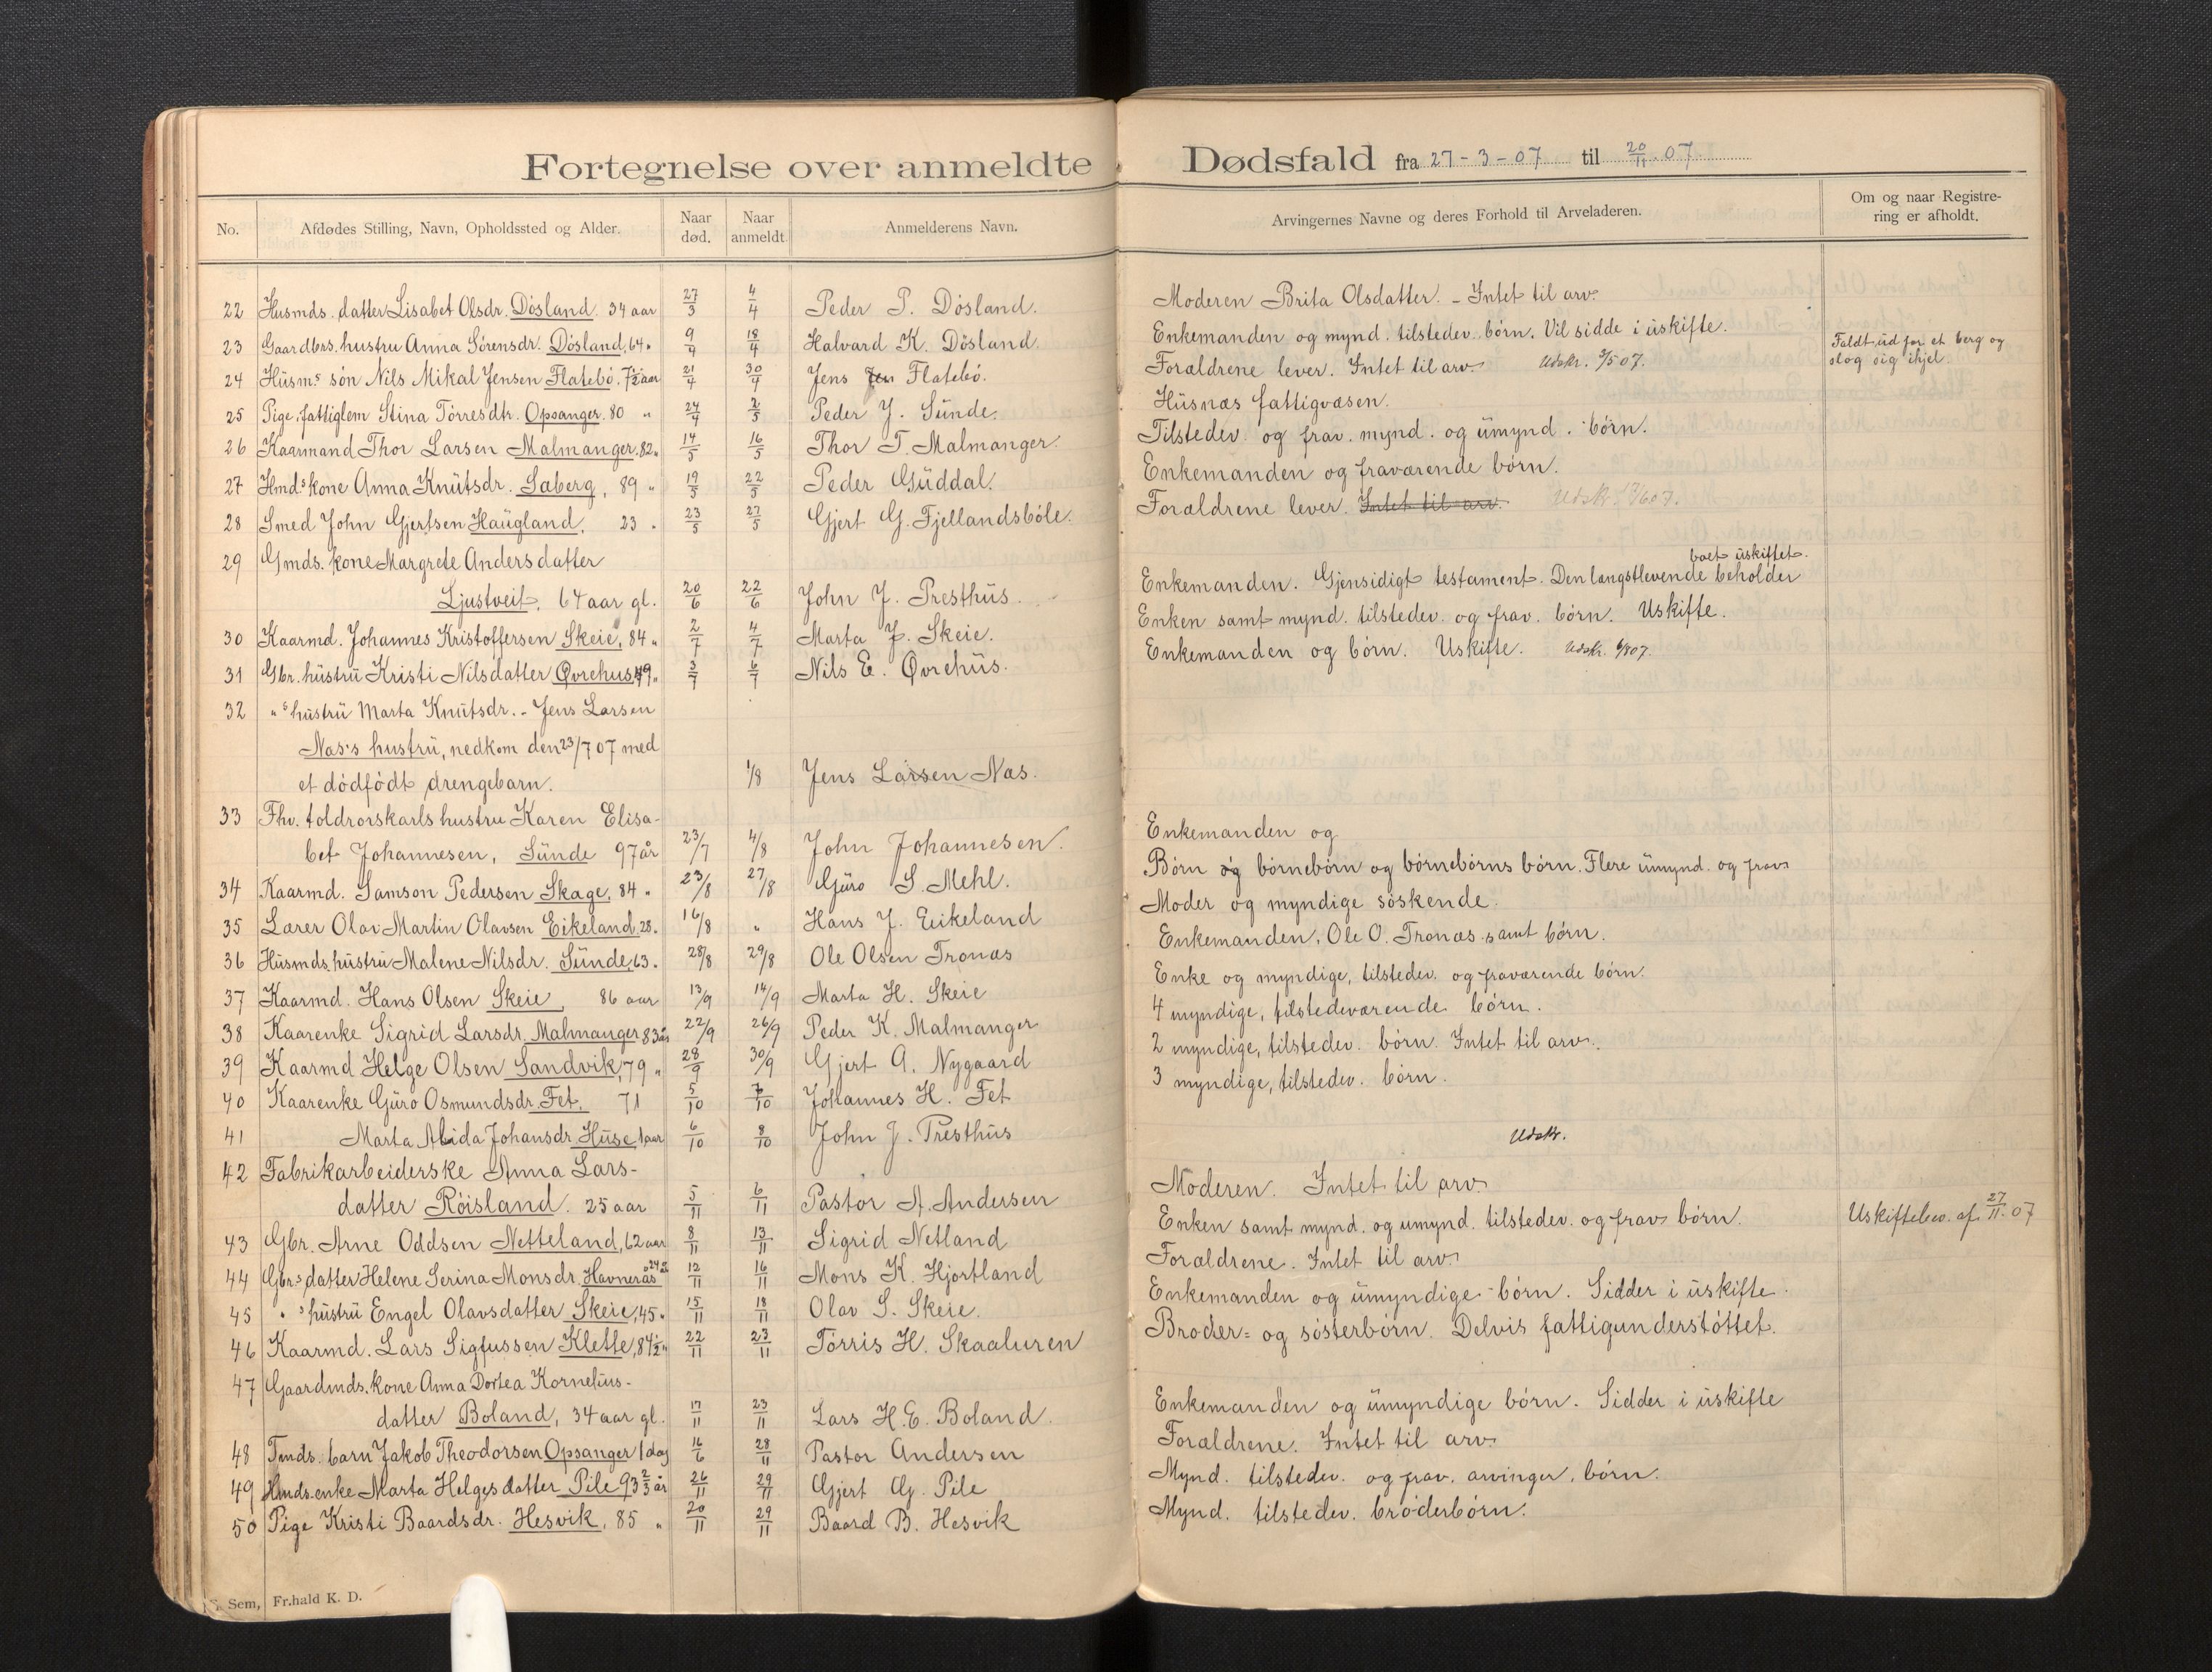 Fortegnelse over anmeldte Dødsfald fra 27-3-07 til 20/11 07
No. Afdødes Stilling, Navn, Opholdssted og Alder. Naar død. Naar anmeldt. Anmelderens Navn. Arvingernes Navne og deres Forhold til Arveladeren. Om og naar Registrering er afholdt.
22 Husmds. datter Lisabet Olsdr. Dösland. 34 aar 27/3 4/4 Peder P. Dösland. Moderen Brita Olsdatter. - Intet til arv.
23 Gaardbrs. hustru Anna Sörensdr. Dösland, 64 " 9/4 18/4 Halvard K. Dösland. Enkemanden og mynd. tilstedev. börn. Vil sidde i uskifte.
24 Husm.s sön Nils Mikal Jensen Flatebö. 7½ aar 21/4 30/4 Jens Jen Flatebö. Forældrene lever. Intet til arv. Udskr. 3/5 07. Faldt ud for et berg og slog sig ihjel.
25 Pige, fattiglem Stina Törresdtr. Opsanger. 80 " 24/4 2/5 Peder J. Sunde. Husnæs fattigvæsen.
26 Kaarmand Thor Larsen Malmanger. 82 " 14/5 16/5 Thor T. Malmanger. Tilstedev. og frav. mynd. og umynd. börn.
27 Hmds kone Anna Knutsdr. Saberg, 89 " 19/5 22/5 Peder Guddal. Enkemanden og fraværende börn.
28 Smed John Gjertsen Haugland, 23 " 23/5 27/5 Gjert G. Fjellandsböle. Forældrene lever. Intet til arv. Udskr.
29 Gmds. kone Margrete Andersdatter
Ljustveit, 64 aar gl. 20/6 22/6 John J. Presthus. Enkemanden. Gjensidigt testament. Den længstlevende beholder boet uskiftet.
30 Kaarmd. Johannes Kristoffersen Skeie, 84 " 2/7 4/7 Marta J. Skeie. Enken samt mynd. tilstedev. og frav. börn. Uskifte.
31 Gbr. hustru Kristi Nilsdatter Øvrehus, 49 " 3/7 6/7 Nils E. Øvrehus. Enkemanden og börn. Uskifte. Udskr. 6/8 07.
32 " s hustru Marta Knutsdr. - Jens Larsen
Næs's hustru, nedkom den 23/7 07 med
et dödfödt drengebarn. 1/8 Jens Larsen Næs.
33 Fhv. toldrorskarls hustru Karen Elisa-
bet Johannesen, Sunde 97 år 23/7 4/8 John Johannesen. Enkemanden og
34 Kaarmd. Samson Pedersen Skage, 84 " 23/8 27/8 Guro S. Mehl. Börn og börnebörn og börnebörns börn. Flere umynd. og frav.
35 Lærer Olav Martin Olavsen Eikeland, 28. 16/8 " Hans J. Eikeland Moder og myndige söskende.
36 Husmds. hustru Malene Nilsdr. Sunde, 63. 28/8 29/8 Ole Olsen Tronæs Enkemanden, Ole O. Tronæs samt börn.
37 Kaarmd. Hans Olsen Skeie, 86 aar 13/9 14/9 Marta H. Skeie Enke og myndige, tilstedev. og fraværende börn.
38 Kaarenke Sigrid Larsdr. Malmanger 83 år 22/9 26/9 Peder K. Malmanger 4 myndige, tilstedeværende börn.
39 Kaarmd Helge Olsen Sandvik, 79 " 28/9 30/9 Gjert A. Nygaard 2 myndige, tilstedev. börn. Intet til arv.
40 Kaarenke Guro Osmundsdr. Fet. 71 5/10 7/10 Johannes H. Fet 3 myndige, tilstedev. börn.
41 Marta Alida Johansdr. Huse 1 aar 6/10 8/10 John J. Presthus Udskr.
42 Fabrikarbeiderske Anna Lars-
datter Röisland. 25 aar 5/11 6/11 Pastor A. Andersen Moderen. Intet til arv.
43 Gbr. Arne Oddsen Netteland, 62 aar 8/11 13/11 Sigrid Netland Enken samt mynd. og umynd. tilstedev. og frav. börn. Uskiftebev. af 27/11.07
44 Gbr.s datter Helene Serina Monsdr. Havnerås 12/11 16/11 Mons K. Hjortland Forældrene. Intet til arv.
45 " s hustru Engel Olavsdatter Skeie, 45 " 15/11 18/11 Olav S. Skeie. Enkemanden og umyndige börn. Sidder i uskifte.
46 Kaarmd. Lars Sigfussen Klette, 84½ " 22/11 23/11 Törris H. Skaaluren Broder- og sösterbörn. Delvis fattigunderstöttet.
47 Gaardmds. kone Anna Dortea Kornelius-
datter Boland, 34 aar gl. 17/11 23/11 Lars H. E. Boland. Enkemanden og umyndige börn. Sidder i uskifte
48 Tmds. barn Jakob Theodorsen Opsanger 1 dag 16/6 28/11 Pastor Andersen Forældrene. Intet til arv.
49 Hmds. enke Marta Helgesdatter Pile 93 2/3 år 26/11 29/11 Gjert G. Pile Mynd. tilstedev. og frav. arvinger, börn.
50 Pige Kristi Baardsdr. Hesvik, 85 " 20/11 29/11 Baard B. Hesvik Mynd. tilstedev. bröderbörn.
Sem, Fr.hald K. D.